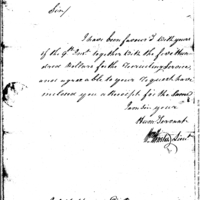 Sir/
I have been favour'd with yours
of the 9th Inst together with the five Hun
dred Dollars for the Recruiting Service
and agreeable to your Request have
enclosed you a Receipt for the same
I am Sir your
Hum Servant